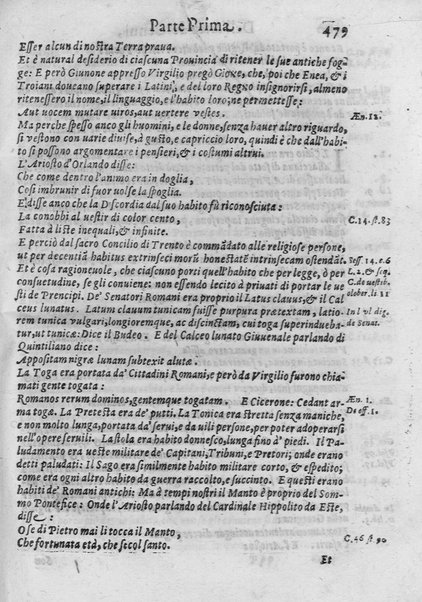 Parte Prima. 479
Esser alcun di nostra Terra praua.
Et è natural desiderio di ciascuna Prouincia di ritener le sue antiche fog-
ge: E però Giunone appresso Virgilio pregò Gioue, che, poi che Enea, & i
Troiani doueano superare i Latini, e del loro Regno insignorirsi, almeno
ritenessero il nome, il linguaggio, e l'habito loro; ne permettesse:
Aut uocem mutare uiros, aut uertere vestes. Æn. 12.
Ma perche spesso anco gli huomini, e le donne, senza hauer altro riguardo,
si vestono con uarie diuise, à gusto, e capriccio loro, quindi è che dall'habi-
to si possono argomentare i pensieri, & i costumi altrui.
L'Ariosto d'Orlando disse:
Che come dentro l'animo era in doglia,
Così imbrunir di fuor uolse la spoglia.
E disse anco che la Discordia dal suo habito fù riconosciuta:
La conobbi al uestir di color cento, C. 14. st. 83
Fatta à liste inequali, & infinite.
E perciò dal sacro Concilio di Trento è commãdato alle religiose persone,
ut per decentiã habitus extrinseci morũ honestatē intrinsecam ostendãt. Sess. 14. c. 6
Et è cosa ragioneuole, che ciascuno porti quell'habito che per legge, ò per L. 2. & seq.
consuetudine, se gli conuiene: non essendo lecito à priuati di portar le ue C. de uestib.
sti de Prencipi. De' Senatori Romani era proprio il Latus clauus, & il Cal olober. li 11
ceus lunatus. Latum clauum tunicam fuisse purpura prætextam, latio-
rem tunica vulgari, longioremque, ac discinctam, cui toga superindueba- In l vl dig.
tur, ut tunicæ: Dice il Budeo. E del Calceo lunato Giuuenale parlando di de Senat.
Quintiliano dice:
Appositam nigræ lunam subtexit alutæ.
La Toga era portata da' Cittadini Romani, e però da Virgilio furono chia-
mati gente togata:
Romanos rerum dominos, gentemque togatam. E Cicerone: Cedant ar Æn. 1.
ma togæ. La Pretesta era de' putti. La Tonica era stretta senza maniche, De off. 1.
e non molto lunga, portata da' serui, e da uili persone, per poter adoperarsi
nell'opere seruili. La stola era habito donnesco, lungo fino à' piedi. Il Pa-
ludamento era ueste militare de' Capitani, Tribuni, e Pretori; onde erano
detti paludati: Il Sago era similmente habito militare corto, & espedito;
come era ogni altro habito da guerra raccolto, e succinto. E questi erano
habiti de' Romani antichi: Ma à tempi nostri il Manto è proprio del Som-
mo Pontefice: Onde l'Ariosto parlando del Cardinale Hippolito da Este,
disse:
O se di Pietro mai li tocca il Manto, C. 46 st 90
Che fortunata età, che secol santo.
Et